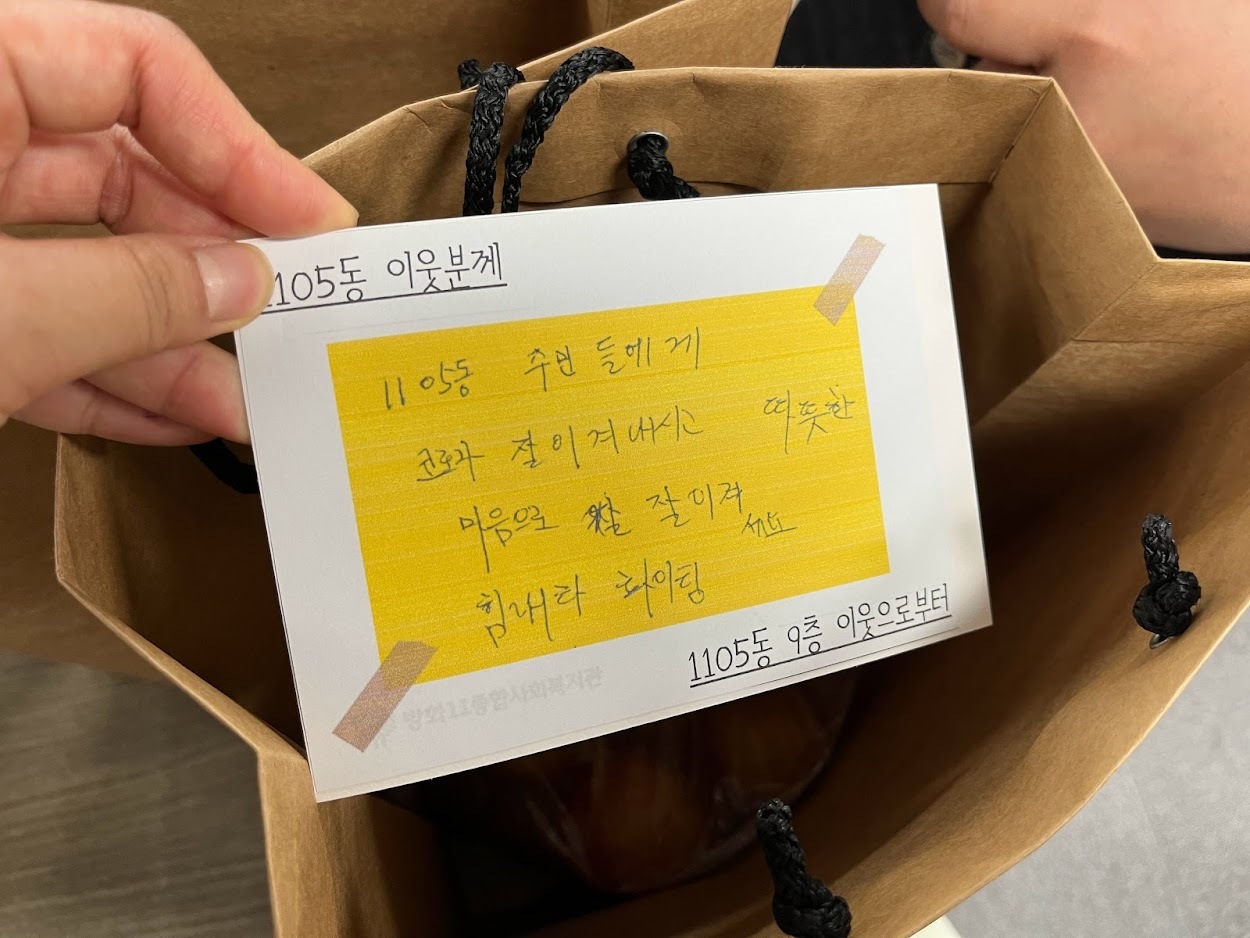 1105동 이웃분께
1105동 주민들에게
코로나 잘 이겨내시고 따뜻한
마음으로 잘 이겨
세요
힘내라 화이팅
방화11종합사회복지관
1105동 9층 이웃으로부터